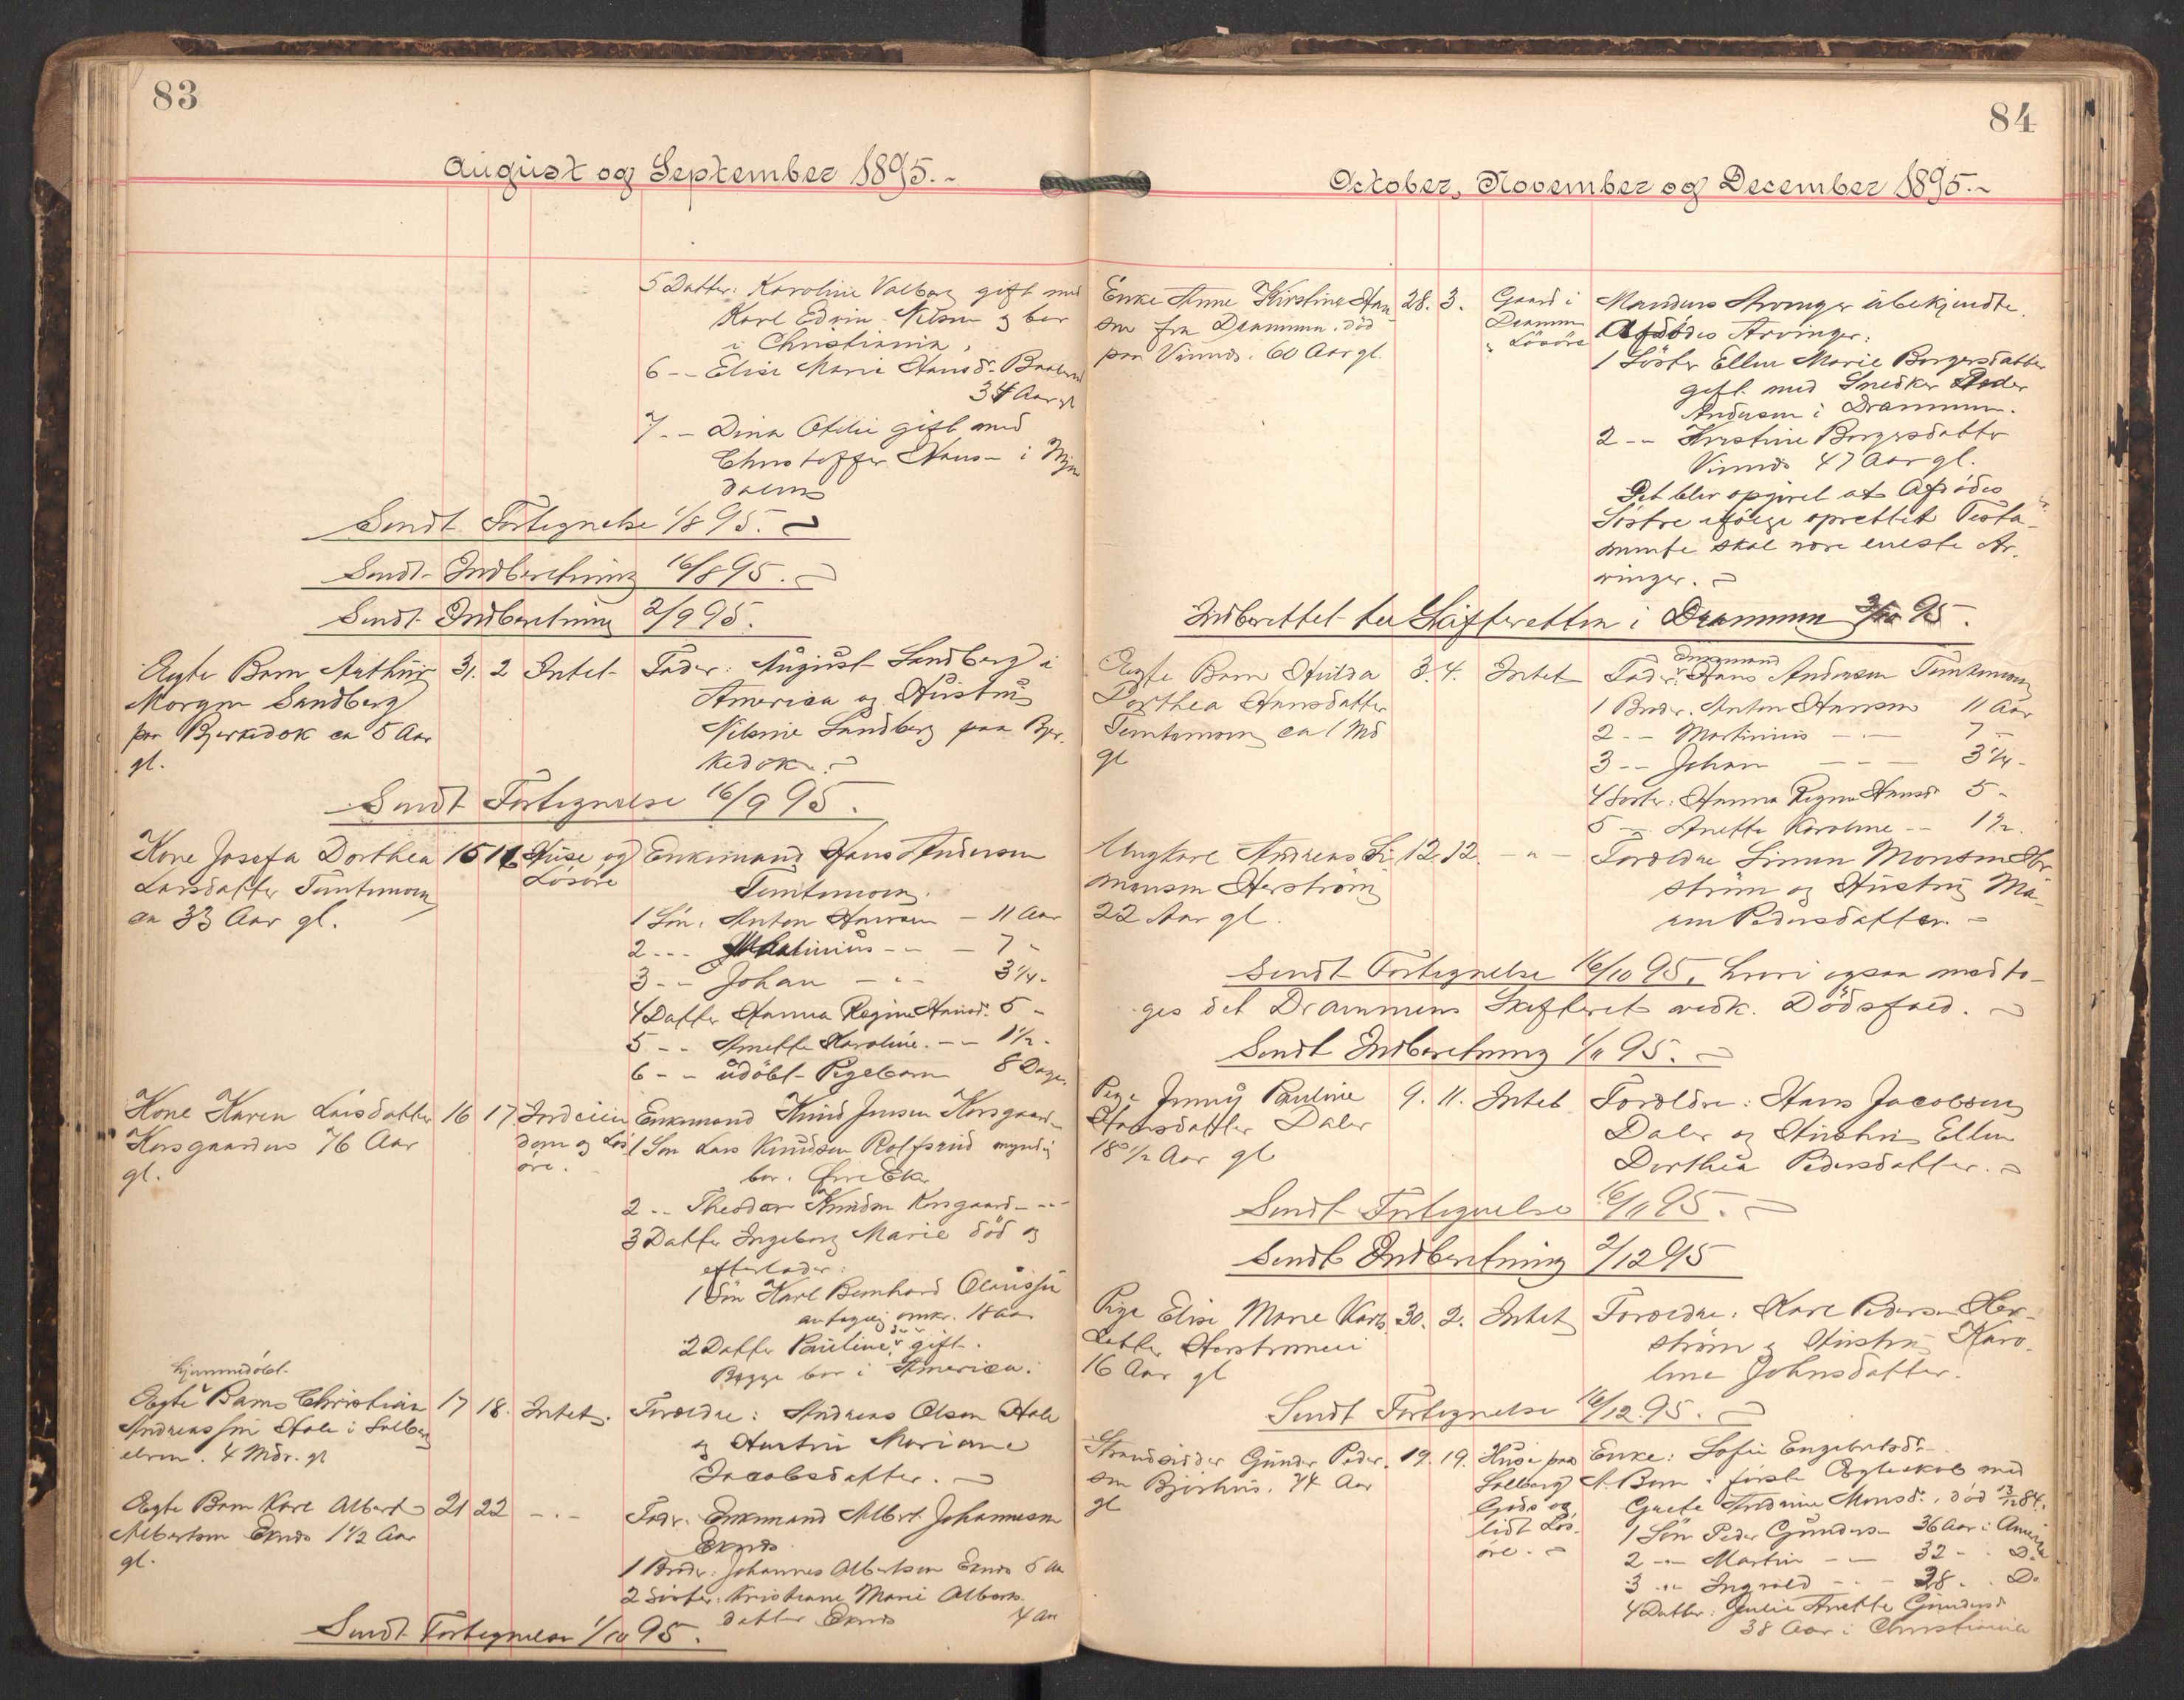 83
August og September 1895.~
5 Datter: Karoline Valborg gift med
Karl Edvin Nilsen og bor
i Christiania.
6 -- Elise Marie Hansd.
34 Aar gl
7 -- Dina Otilie gift med
Christoffer Hansen i
dalen
Sendt Fortegnelse 1/8 95.
Sendt Indberetning 16/8 95.
Sendt Indberetning 2/9 95.
Egte Barn Arthur 31. 2 Intet Fader: August Sandberg i
Morgan Sandberg America og Hustru
paa Bjerkedok ca 5 Aar Nilsine Sandberg paa Bjer-
gl. kedok.
Sendt Fortegnelse 16/9 95.
Kone Josefa Dorthea 15 16 Huse og Enkemand Hans Andersen
Larsdatter Tømtemoen Løsøre Tømtemoen.
ca 33 Aar gl. 1 Søn: Anton Hansen - 11 Aar
2 --- Martinius -- - 7 -
3 -- Johan - -- 3 1/4 -
4 Datter Hanna Regine Hansd. 5 -
5 -- Anette Karoline. -- 1 1/2 -
6 -- udøbt Pigebarn 8 Dage.
Kone Karen Larsdatter 16 17 Jordeien Enkemand Knud Jensen Korsgaard-
Korsgaarden 76 Aar dom og Løs 1 Søn Lars Knudsen Rolfsrud myndig
gl. øre. bor. Øvre Eker
2 -- Theodor Knudsen Korsgaard ---
3 Datter Ingeborg Marie død og
efterlader:
1 Søn Karl Bernhard Olaussen
antagelig omkr. 18 Aar
2 Datter Pauline, er gift.
Begge bor i America.
hjemmedøbt
Egte Barn Christian 17 18. Intet. Foreldre: Andreas Olsen Hole
Andreassen Hole i Solberg og Hustru Mariane
elven. 4 Mdr. gl Jacobsdatter.
Egte Barn Karl Albert 21 22 - . - Fader: Enkemand Albert Johannesen
Albertsen Eknes 1 1/2 Aar Eknes.
gl. 1 Broder: Johannes Albertsen Eknes 5 Aar
2 Søster: Kristiane Marie Alberts
datter Eknes 4 Aar
Sendt Fortegnelse 1/10 95.
84
October, November og December 1895.~
Enke Anne Kirstine Han 28. 3. Gaard i Mandens Arvinger ubekjendte.
sen fra Drammen. død Drammen Afdødes Arvinger:
paa Vinnes. 60 Aar gl. og Løsøre 1 Søster Ellen Marie Borgersdatter
gift med Snedker Peder
Andersen i Drammen.
2 -- Kristine Borgersdatter
Vinnes 47 Aar gl.
Det blev opgivet at Afdødes
Søstre ifølge oprettet Testa-
mente skal være eneste Ar-
vinger.
Indberettet til Skifteretten i Drammen 3/10 95.
Egte Barn Hulda 3. 4. Intet Fader: Hans Andersen Tømtemoen
Dorthea Hansdatter 1 Broder. Anton Hansen 11 Aar
Tømtemoen ca 1 Md 2 -- Martinius - . - 7 -
gl 3 -- Johan - - - 3 1/4 -
4 Søster: Hanna Regine Hansd 5 -
5 -- Anette Karoline -- 1 1/2.
Ungkarl Andreas Si 12. 12. - " - Foreldre Simen Monsen Her
monsen Herstrøm ström og Hustru Ma-
22 Aar gl. ren Pedersdatter.
Sendt Fortegnelse 16/10 95. hvori ogsaa medto-
ges det Drammens Skifteret vedk. Dødsfald.
Sendt Indberetning 1/11 95.
Pige Jenny Pauline 9. 11. Intet Foreldre: Hans Jacobsen
Hansdatter Daler Daler og Hustru Ellen
18 1/2 Aar gl Dorthea Pedersdatter.
Sendt Fortegnelse 16/11 95.
Sendt Indberetning 2/12 95
Pige Elise Marie Karls 30. 2. Intet Foreldre: Karl Pedersen Her-
datter Herstrømen ström og Hustru Karo-
16 Aar gl line Johnsdatter.
Sendt Fortegnelse 16/12 95.
Strandsidder Gunder Peder- 19. 19. Huse paa Enke: Sofie Engebretsd.
sen Bjørhus. 74 Aar Solberg A. Børn i første Egteskab med
gl Gods og Grete Andrine Monsd., død 13/12 84.
lidt Løs- 1 Søn Peder Gundersen 36 Aar i America
øre. 2 --- Martin -- 32 - . Do
3 --- Ingvald -- - 28 - . Do
4 Datter: Julie Anette Gundersd
38 Aar i Christiania